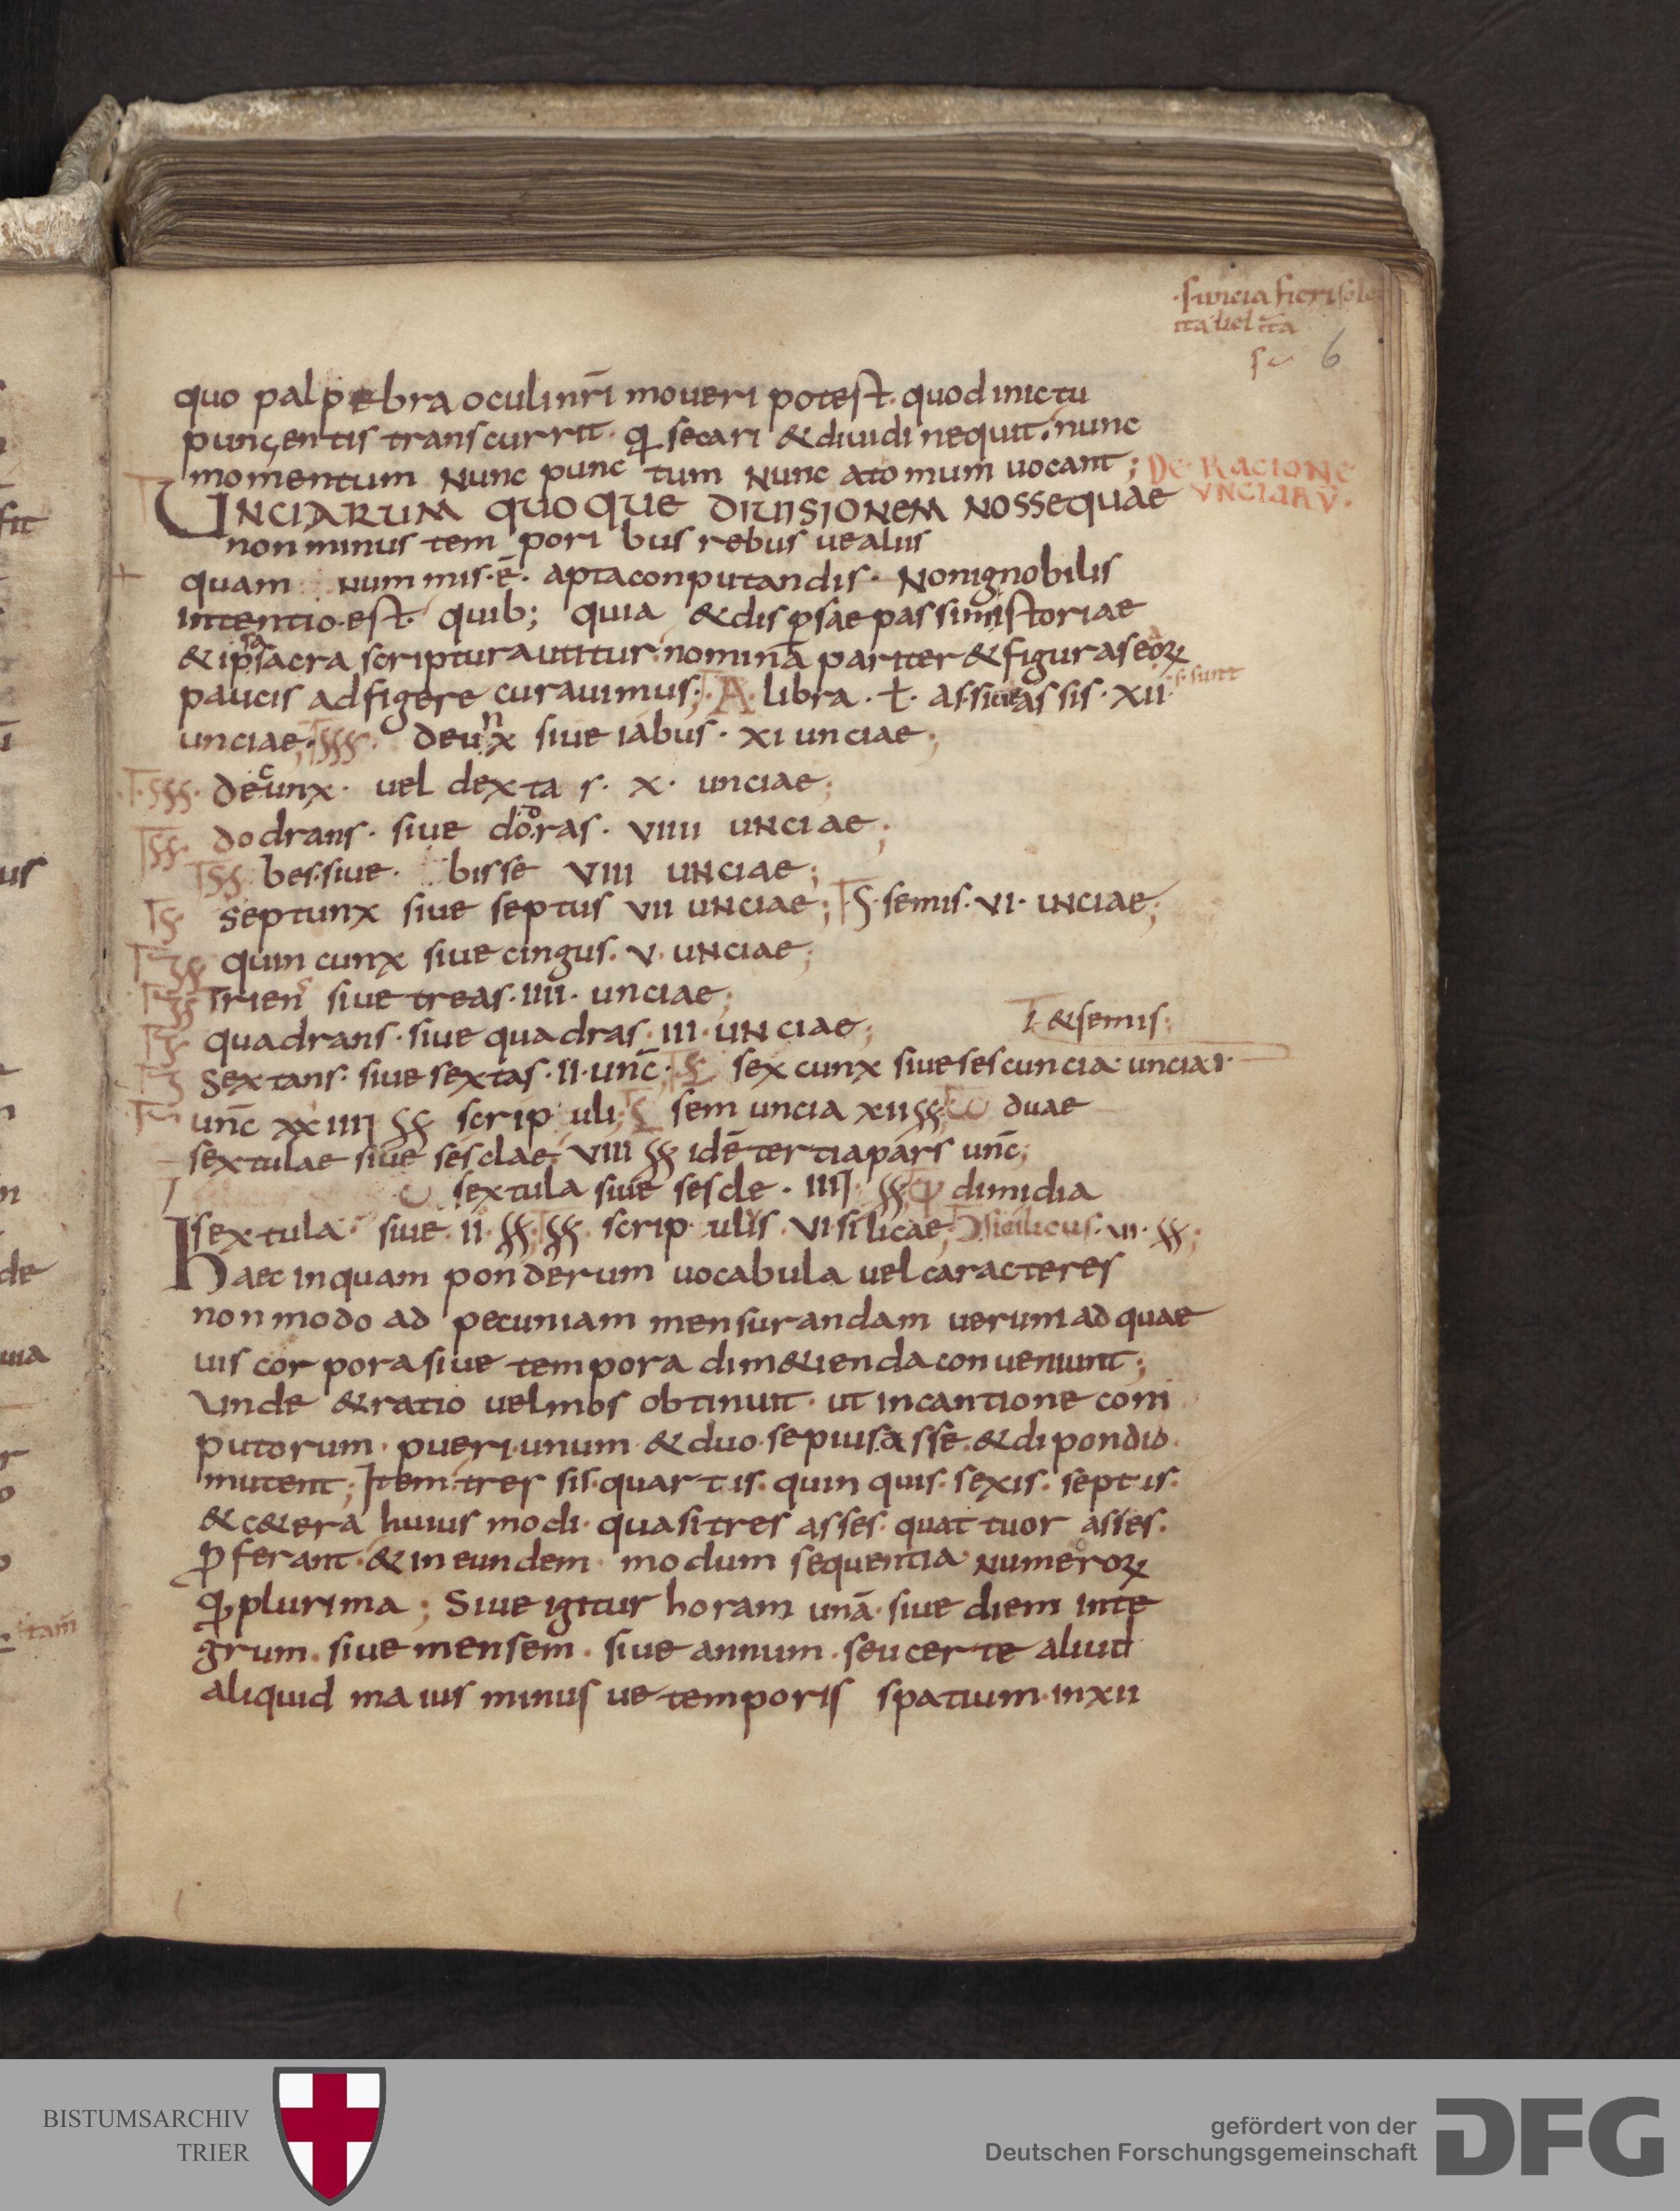 ·semuncia fieri sole
ita uel ita
6
quo palpebra oculi nr̄i moueri potest· quod in ictu
pungentis transcurrit· q secari & diuidi nequit. nunc
momentum Nunc punctum Nunc atomum uocant;
DE· RACIONE
VNCIARV̄.
UNCIARUM QUOQUE DIUISIONEM NOSSE quae
non minus temporibus rebus ue aliis
quam nummis·ē· apta conputandis· Non ignobilis
intentio·est· quib; quia & disp̄sae passim istoriae
& ipsa sacra scriptura utitur· nominā pariter & figuras eoꝝ
paucis adfigere curauimus; A· libra· ł· as·siue assis· XII· s· sunt
unciae; deunx siue iabus· XI unciae;
decunx· uel dextas· X· unciae;
dodrans· siue dodras· VIIII UNCIAE;
bes·siue· bisse VIII UNCIAE;
Septunx siue septus VII UNCIAE; S·semis·VI· UNCIAE;
quincunx siue cingus· V· UNCIAE;
Triens siue treas·IIII· unciae;
quadrans·siue quadras·III·UNCIAE;
I· & semis;
Sextans· siue sextas·II·unc̄· sexcunx siue sescuncia· uncia I·
unc̄ XXIIII scripuli; semuncia XII duae
sextulae siue sesclae; VIII idē tertia pars unc̄;
sextula siue sescle· IIII· dimidia
sextula· siue· II· scripulis· VI silicae; sicilicus·VI·
Haec inquam ponderum uocabula uel caracteres
non modo ad pecuniam mensurandam uerum ad quae
uis corpora siue tempora dim&ienda conueniunt;
Unde & ratio uel mos obtinuit· ut in cantione com
putorum· pueri·unum· & duo·sepius asse· & dipondio·
mutent; Item·tressis·quartis·quinquis·sexis·septis·
& c&era huius modi· quasi tres asses· quattuor asses·
ꝓferant· & in eundem· modum sequentia Numeroꝝ
q plurima; Siue igitur horam unā·siue diem inte
grum·siue mensem· siue annum·seu certe aliud
aliquid maius minus ue temporis spatium· in XII
us
de
tam̄
BISTUMSARCHIV
TRIER
gefördert von der
Deutschen Forschungsgemeinschaft
DFG